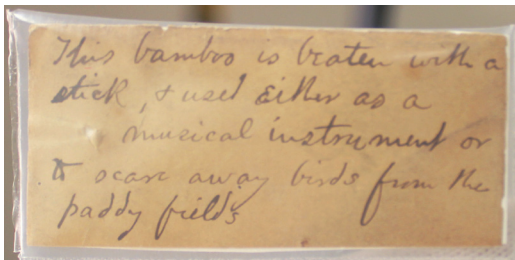 This bamboo is beaten with a
stick, & used either as a
musical instrument or
to scare away birds from the
paddy fields